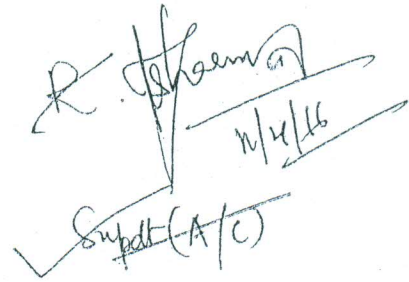 R. Sharma
11/4/16
Supdt (A/C)